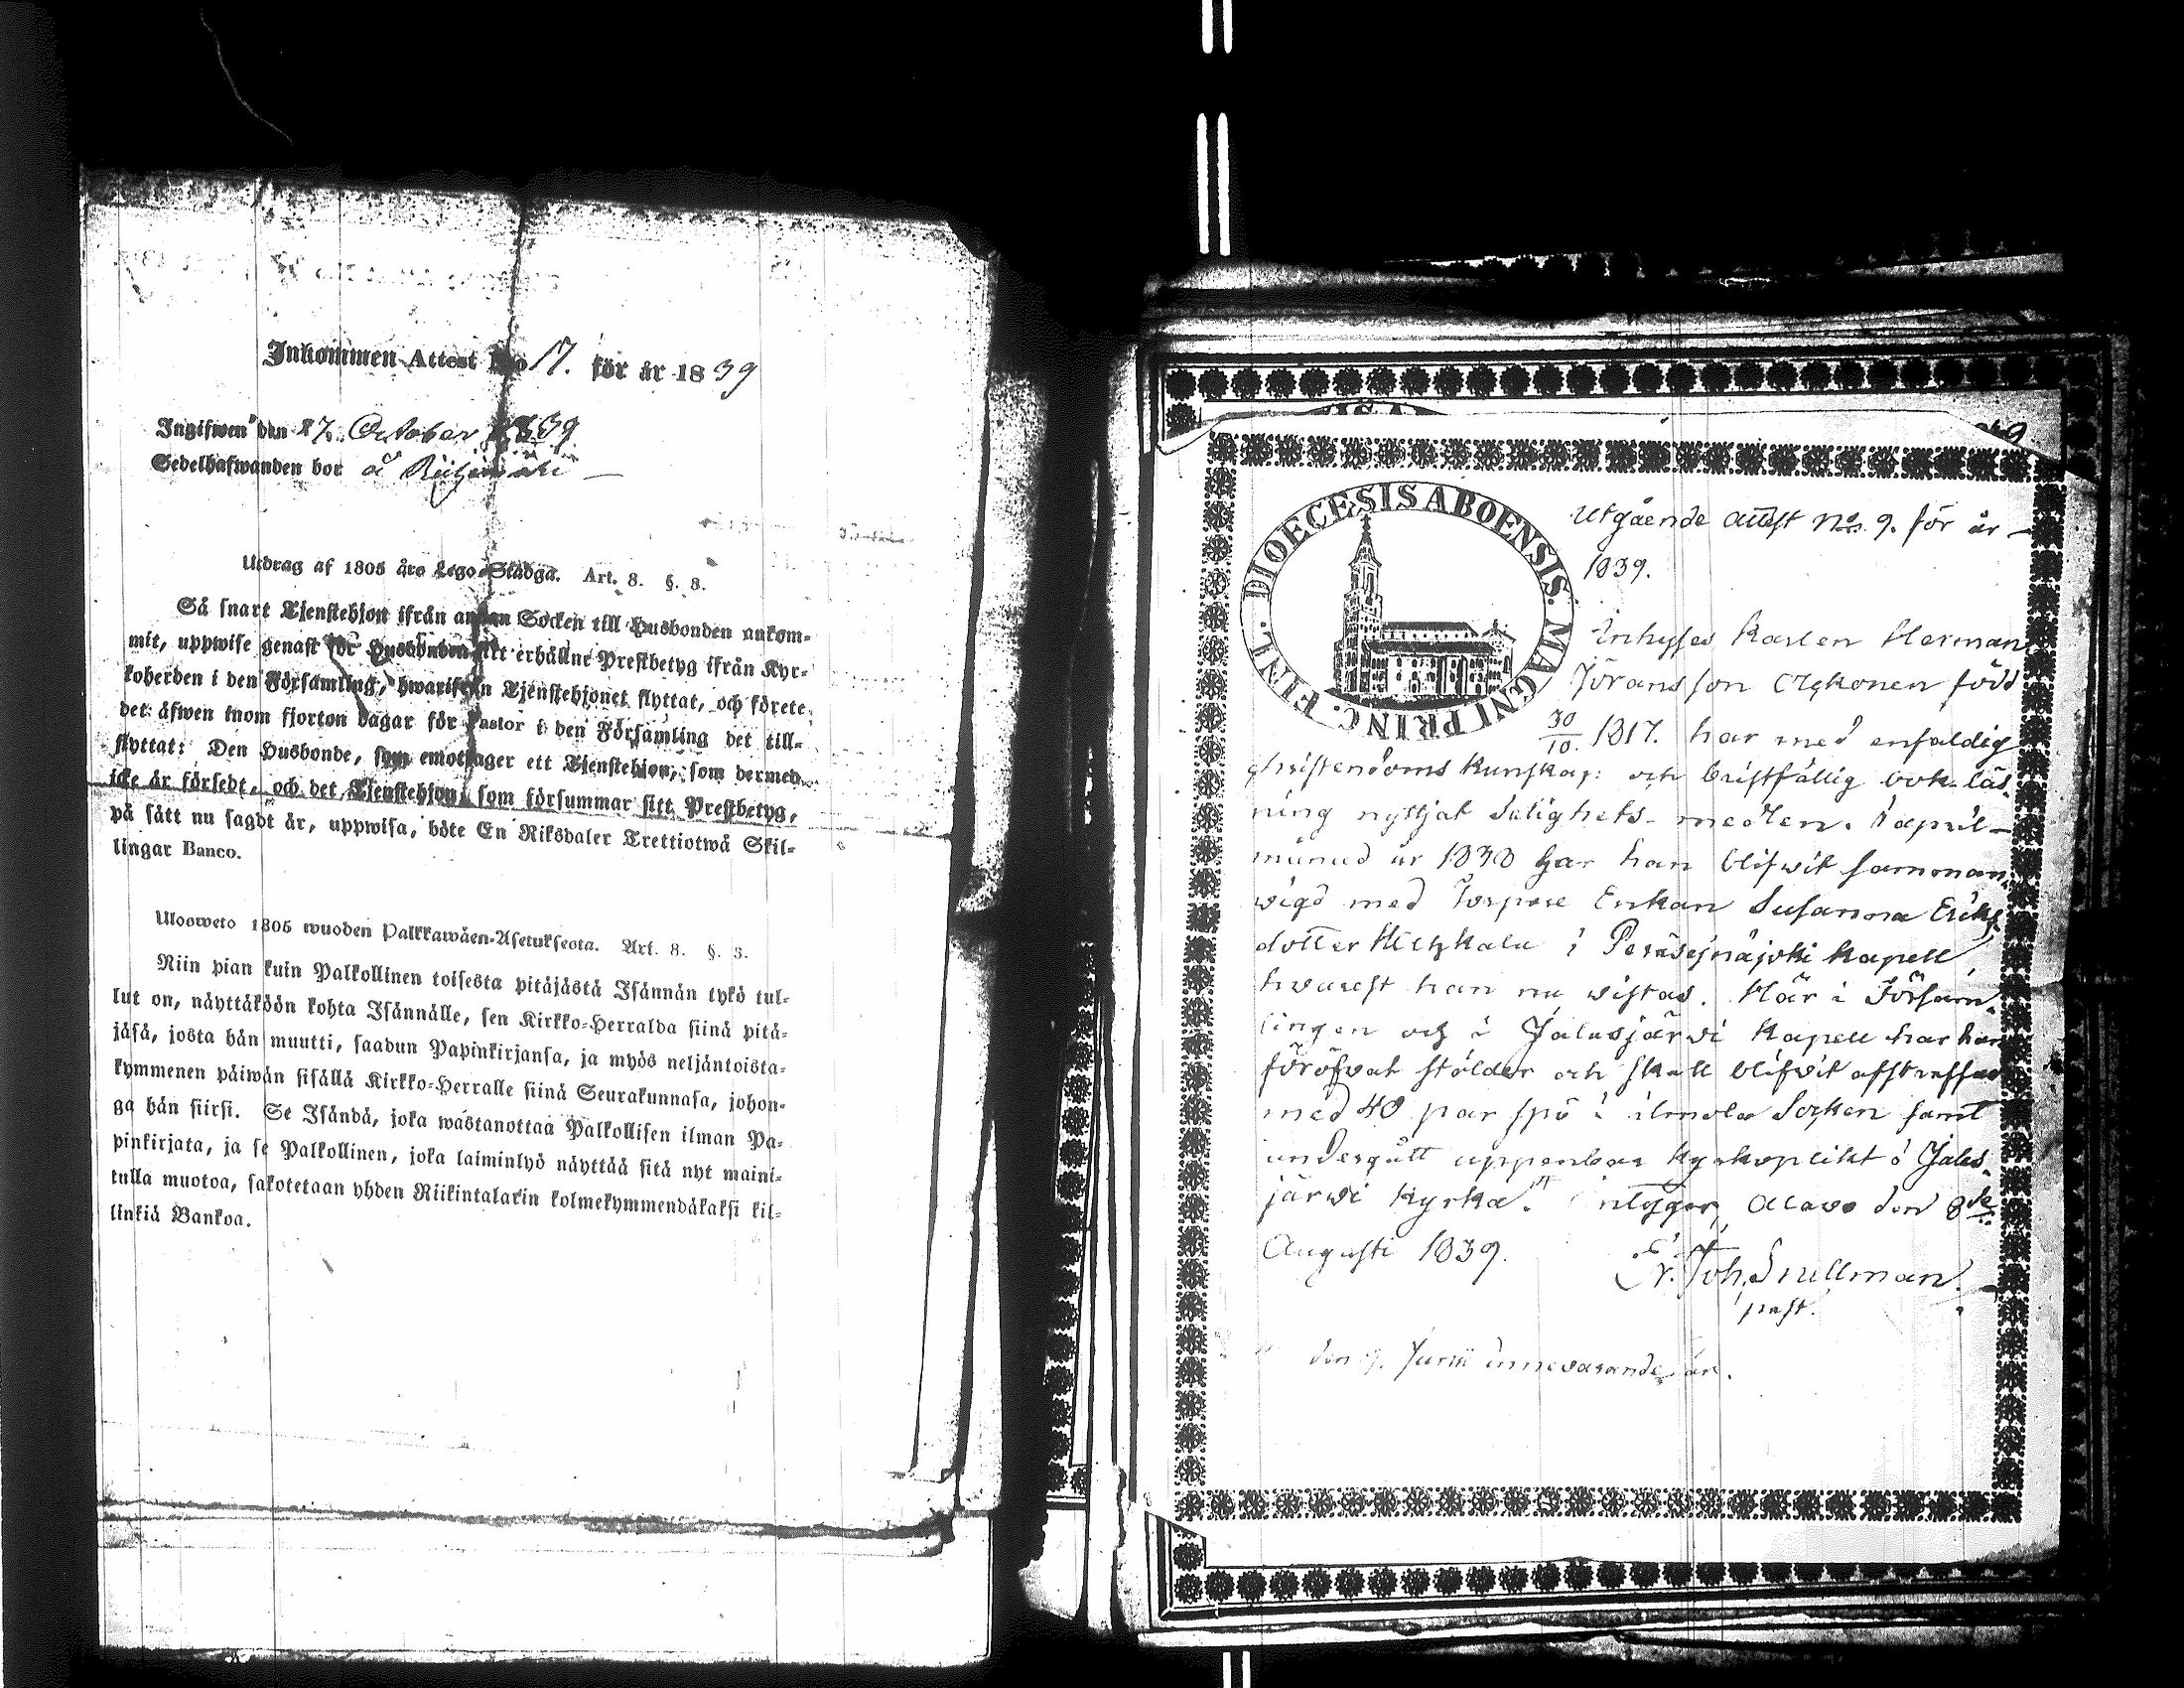 Inkommen Attest No 17. för år 1839
Ingifwen den 27. October 1839
Sedelhafwanden bor å
Utdrag af 1805 års Lego-Stadga. Art. 8. §. 8.
Så snart Tjenstehjon ifrån annan Socken till Husbonden ankom-
mit, uppwise genast för Husbonden sitt erhållne Prestbetyg ifrån Kyr-
koherden i den Församling, hwarifrån Tjenstehjonet flyttat, och förete
det äfwen inom fjorton dagar för Pastor i den Församling det till-
flyttat: Den Husbonde, som emottager ett Tjenstehjon, som dermed
icke är försedt, och det Tjenstehjon, som försummar sitt Prestbetyg,
på sätt nu sagdt är, uppwisa, böte En Riksdaler Trettiotwå Skil-
lingar Banco.
Ulosweto 1805 wuoden Palkkawäen-Asetuksesta. Art. 8. §. 3.
Niin pian kuin Palkollinen toisesta pitäjästä Isännän tykö tul-
lut on, näyttäköön kohta Isännälle, sen Kirkko-Herralda siinä pitä-
jäsä, josta hän muutti, saadun Papinkirjansa, ja myös neljäntoista-
kymmenen päiwän sisällä Kirkko-Herralle siinä Seurakunnasa, johon-
ga hän siirsi. Se Isändä, joka wastanottaa Palkollisen ilman Pa-
pinkirjata, ja se Palkollinen, joka laiminlyö näyttää sitä nyt maini-
tulla muotoa, sakotetaan yhden Riikintalarin kolmekymmendäkaksi kil-
linkiä Bankoa.
DIOECESIS ABOENSIS. MAGNI PRINC. FINL.
Utgående attest No. 9. för år
1839.
Inhyses Karlen Herman
Jöransson född
30/10. 1817. har med enfaldig
christendoms kunskap och bristfällig bok-läs-
ning nyttjat Salighets-medlen. I april
månad år 1838 har han blifwit samman-
wigd med Enkan Susanna Eriks-
dotter i Peräsejnäjoki Kapell,
hwarest han nu wistas. Här i Försam-
lingen och i Jalasjärwi Kapell har han
föröfvat stölder och skall blifwit afstraffad
med 40 par spö i ilmola Socken samt
undergått uppenbar kyrkoplikt i Jalas-
järwi Kyrka. intygar, Alavo den 8de
Augusti 1839.
Joh. Snellman
past.
den 9. Junii innevarande år.